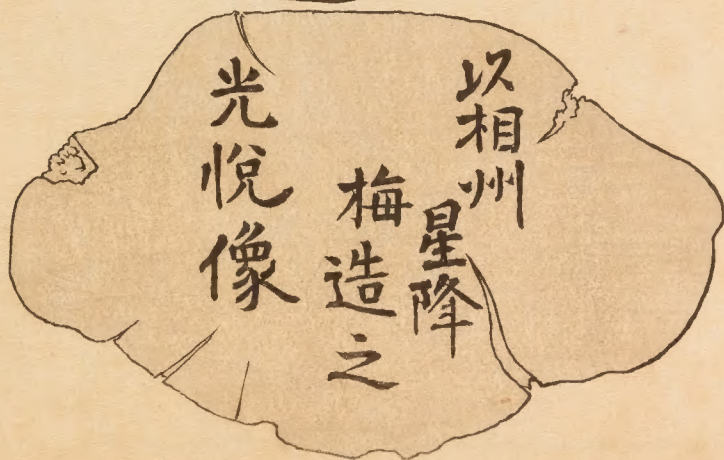 以相州
星降
梅造之
光悦像